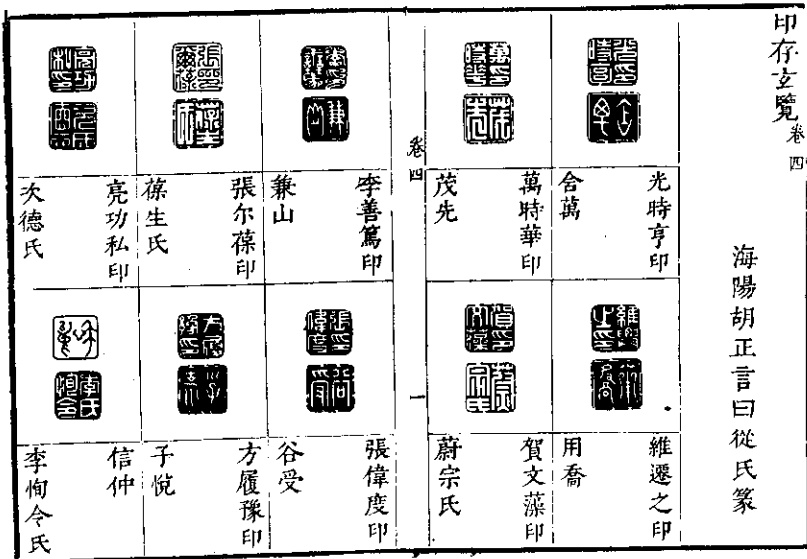 印存玄覽 卷四
海陽胡正言曰從氏篆
光時亨印
含萬
萬時華印
茂先
維遷之印
用喬
賀文藻印
蔚宗氏
卷四
一
李善篤印
兼山
張尔葆印
葆生氏
亮功私印
次德氏
張偉度印
谷受
方履豫印
子悅
信仲
李恂令氏